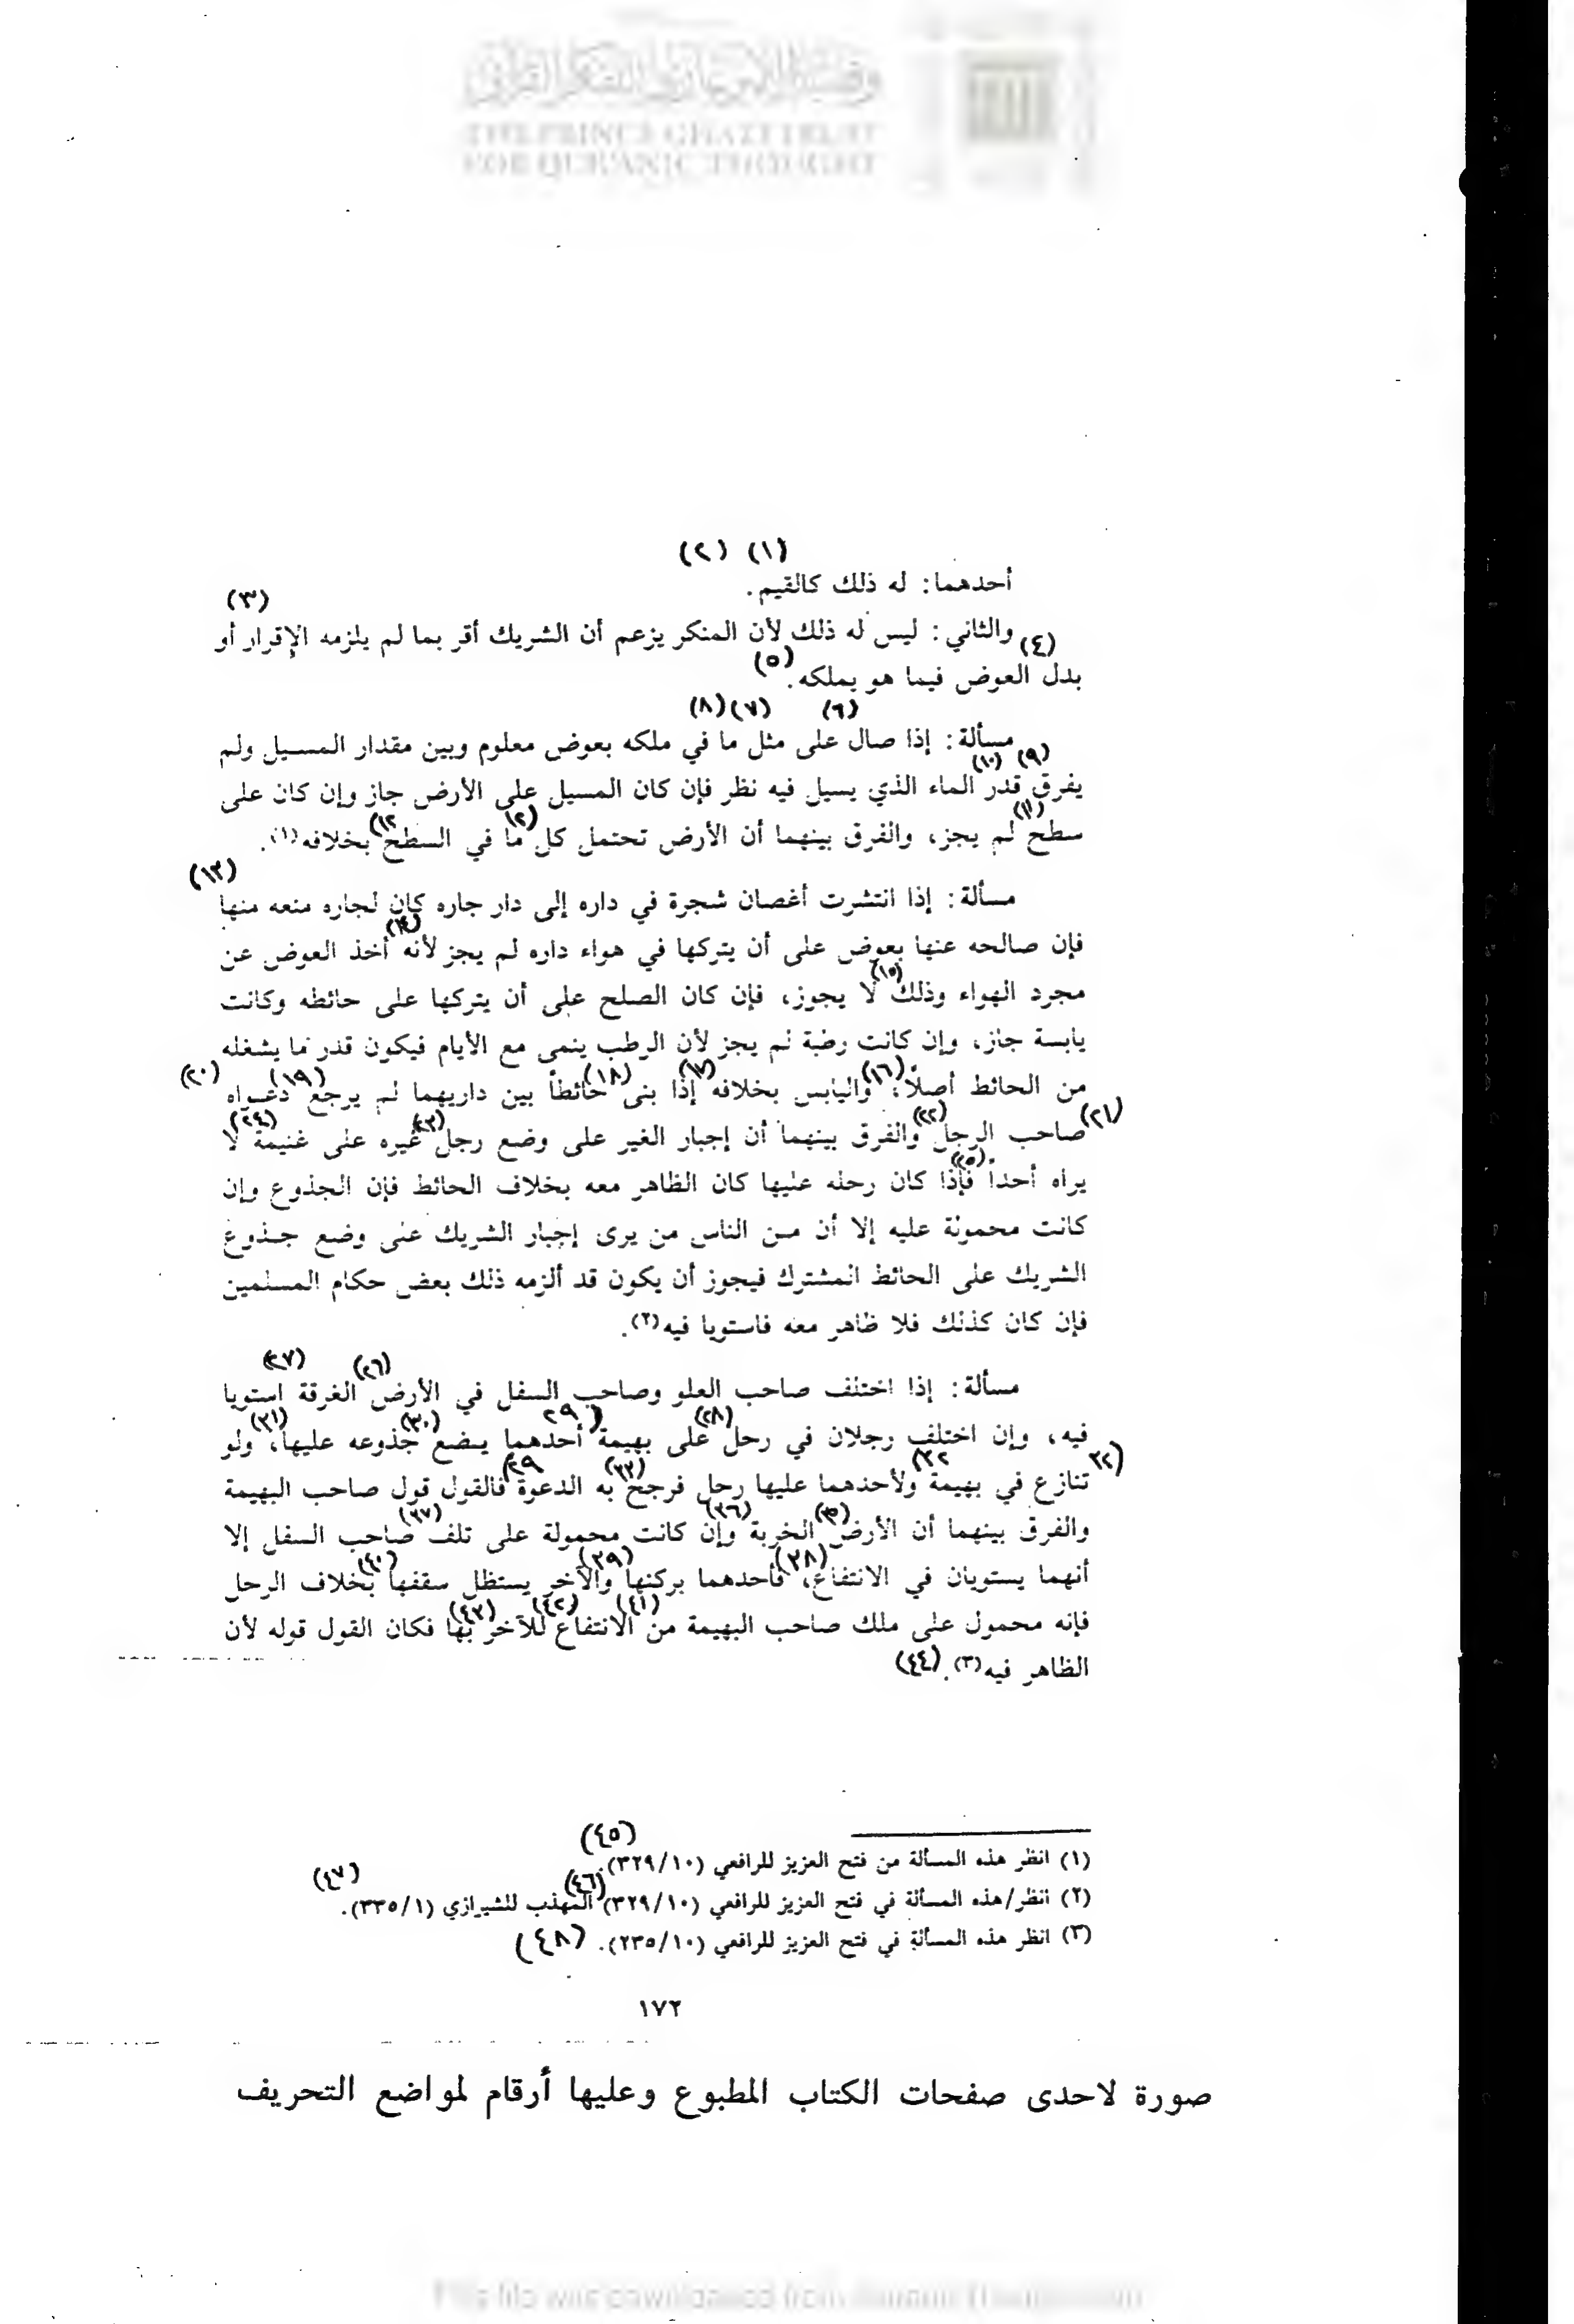 THE PRINCE GHAZI TRUST
FOR QUR'ANIC THOUGHT
(١) (٢)
أحدهما: له ذلك كالقيم.
(٣)
(٤) والثاني: ليس له ذلك لأن المنكر يزعم أن الشريك أقر بما لم يلزمه الإقرار أو
(٥)
بدل العوض فيما هو يملكه.
(٦) (٧) (٨)
مسألة: إذا صال على مثل ما في ملكه بعوض معلوم وبين مقدار المسيل ولم
(٩) (١٠)
يفرق قدر الماء الذي يسيل فيه نظر فإن كان المسيل على الأرض جاز وإن كان على
(١١) (١٢) (١٢)
سطح لم يجز، والفرق بينهما أن الأرض تحتمل كل ما في السطح بخلافه(١).
(١٣)
مسألة: إذا انتشرت أغصان شجرة في داره إلى دار جاره كان لجاره منعه منها
(١٤)
فإن صالحه عنها بعوض على أن يتركها في هواء داره لم يجز لأنه أخذ العوض عن
(١٥)
مجرد الهواء وذلك لا يجوز، فإن كان الصلح على أن يتركها على حائطه وكانت
يابسة جاز، وإن كانت رطبة لم يجز لأن الرطب ينمى مع الأيام فيكون قدر ما يشغله
(١٦) (١٧) (١٨) (١٩) (٢٠)
من الحائط أصلاً، واليابس بخلافه إذا بنى حائطاً بين داريهما لم يرجع دعواه
(٢١) (٢٢) (٢٣) (٢٤)
صاحب الرجل والفرق بينهما أن إجبار الغير على وضع رجل غيره على غنيمة لا
(٢٥)
يراه أحداً فإذا كان رحله عليها كان الظاهر معه بخلاف الحائط فإن الجذوع وإن
كانت محمولة عليه إلا أن من الناس من يرى إجبار الشريك على وضع جذوع
الشريك على الحائط المشترك فيجوز أن يكون قد ألزمه ذلك بعض حكام المسلمين
فإن كان كذلك فلا ظاهر معه فاستويا فيه(٢).
(٢٦) (٢٧)
مسألة: إذا اختلف صاحب العلو وصاحب السفل في الأرض الغرقة استويا
(٢٨) (٢٩ (٣٠) (٣١)
فيه، وإن اختلف رجلان في رحل على بهيمة أحدهما يضع جذوعه عليها، ولو
٣٢) ٣٢) (٣٣) (٢٩
تنازع في بهيمة ولأحدهما عليها رحل فرجح به الدعوة فالقول قول صاحب البهيمة
(٣٥) (٣٦) (٣٧)
والفرق بينهما أن الأرض الخربة وإن كانت محمولة على تلف صاحب السفل إلا
(٣٨) (٣٩) (٤٠)
أنهما يستويان في الانتفاع، فأحدهما بركنها والآخر يستظل سقفها بخلاف الرحل
(٤١) (٤٢) (٤٣)
فإنه محمول على ملك صاحب البهيمة من الانتفاع للآخر بها فكان القول قوله لأن
الظاهر فيه(٣). (٤٤)
(٤٥)
(١) انظر هذه المسألة من فتح العزيز للرافعي (٣٢٩/١٠).
(٤٦) (٤٧)
(٢) انظر/هذه المسألة في فتح العزيز للرافعي (٣٢٩/١٠) المهذب للشيرازي (٣٣٥/١).
(٣) انظر هذه المسألة في فتح العزيز للرافعي (٢٣٥/١٠). (٤٨)
١٧٢
صورة لاحدى صفحات الكتاب المطبوع وعليها أرقام لمواضع التحريف